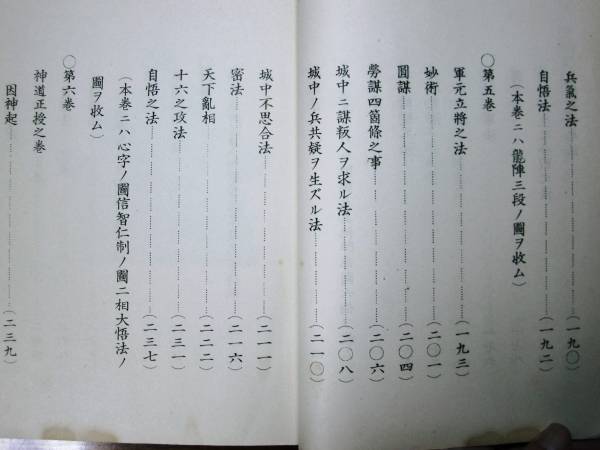 兵氣之法……………(一九〇)
自悟法……………(一九二)
(本卷ニハ龍陣三段ノ圖ヲ收ム)
〇第五卷
軍元立將之法……………(一九三)
妙術……………(二〇一)
圓謀……………(二〇四)
勞謀四箇條之事……………(二〇六)
城中ニ謀叛人ヲ求ル法……………(二〇八)
城中ノ兵共疑ヲ生ズル法……………(二一〇)
城中不思合法……………(二一一)
密法……………(二一六)
天下亂相……………(二二二)
十六之攻法……………(二三一)
自悟之法……………(二三七)
(本卷ニハ心字ノ圖信智仁制ノ圖二相大悟法ノ
圖ヲ收ム)
〇第六卷
神道正授之卷
因神起……………(二三九)